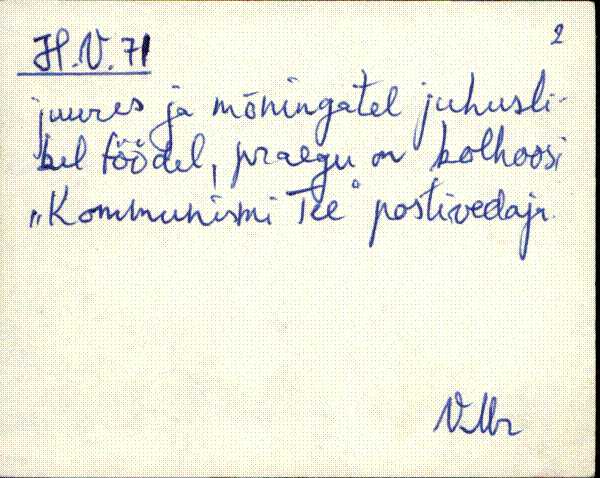 H.V. 71
2
juures ja mõningatel juhusli-
kel töödel, praegu on kolhoosi
„Kommunismi Tee" postivedaja.
VMr